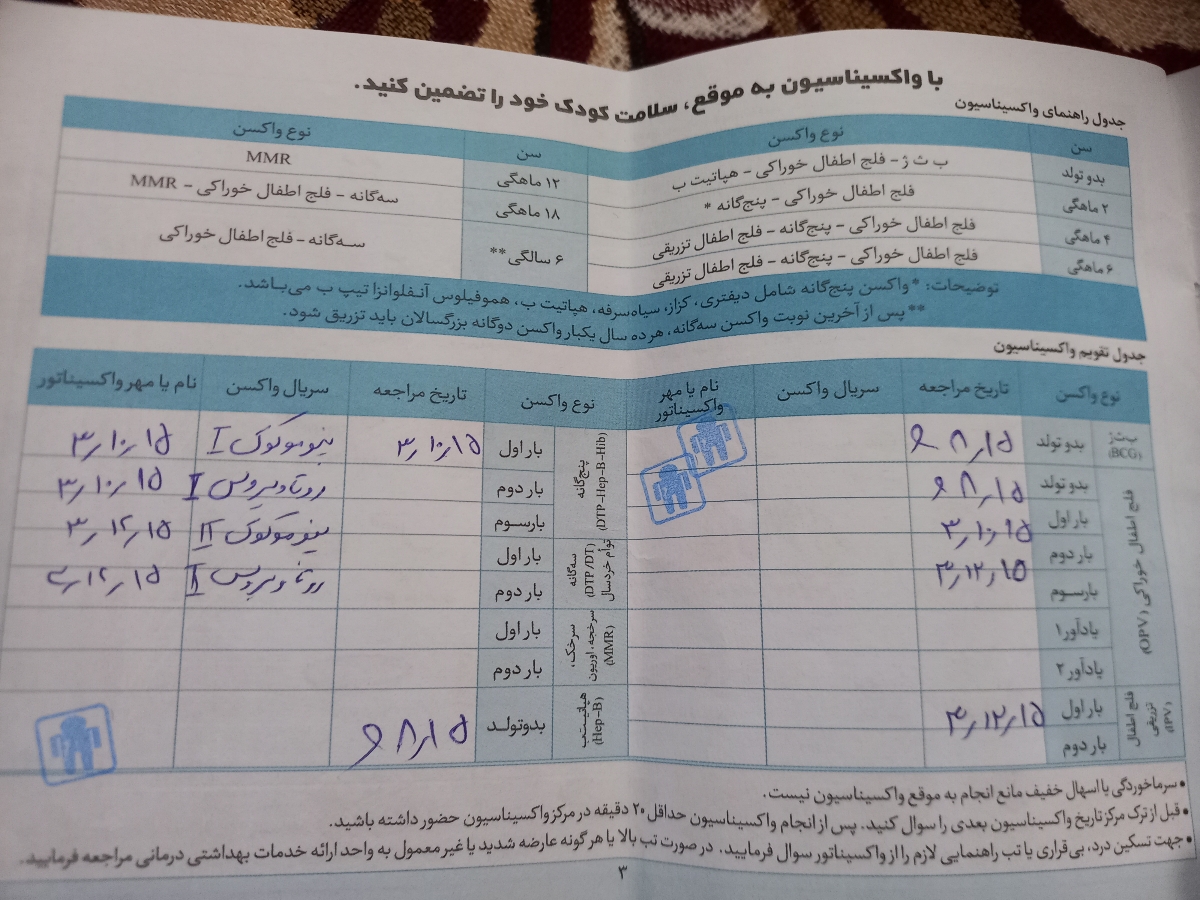 با واکسیناسیون به موقع، سلامت کودک خود را تضمین کنید.
جدول راهنمای واکسیناسیون
سن نوع واکسن سن نوع واکسن
بدو تولد ب ث ژ - فلج اطفال خوراکی - هپاتیت ب ۱۲ ماهگی MMR
۲ ماهگی فلج اطفال خوراکی - پنج‌گانه * ۱۸ ماهگی سه‌گانه - فلج اطفال خوراکی - MMR
۴ ماهگی فلج اطفال خوراکی - پنج‌گانه - فلج اطفال تزریقی ۶ سالگی ** سه‌گانه - فلج اطفال خوراکی
۶ ماهگی فلج اطفال خوراکی - پنج‌گانه - فلج اطفال تزریقی
توضیحات: *واکسن پنج‌گانه شامل دیفتری، کزاز، سیاه‌سرفه، هپاتیت ب، هموفیلوس آنفلوانزا تیپ ب می‌باشد.
**پس از آخرین نوبت واکسن سه‌گانه، هر ده سال یکبار واکسن دوگانه بزرگسالان باید تزریق شود.
جدول تقویم واکسیناسیون
نوع واکسن تاریخ مراجعه سریال واکسن نام یا مهر واکسیناتور نوع واکسن تاریخ مراجعه سریال واکسن نام یا مهر واکسیناتور
ب‌ث‌ژ (BCG) بدو تولد ۸٫۱۵ پنج‌گانه (DTP-Hep-B-Hib) بار اول ۳٫۱۰٫۱۵ پنوموکوک I ۳٫۱۰٫۱۵
فلج اطفال خوراکی (OPV) بدو تولد ۸٫۱۵ بار دوم روتاویروس I ۳٫۱۰٫۱۵
بار اول ۳٫۱۰٫۱۵ بارسوم پنوموکوک II ۳٫۱۲٫۱۵
بار دوم ۳٫۱۲٫۱۵ سه‌گانه (DTP/DT) توأم خردسال بار اول روتاویروس II ۳٫۱۲٫۱۵
بارسوم بار دوم
یادآور ۱ سرخک، سرخجه، اوریون (MMR) بار اول
یادآور ۲ بار دوم
فلج اطفال تزریقی (IPV) بار اول ۳٫۱۲٫۱۵ هپاتیت‌ب (Hep-B) بدوتولد ۸٫۱۵
بار دوم
•سرماخوردگی یا اسهال خفیف مانع انجام به موقع واکسیناسیون نیست.
•قبل از ترک مرکز تاریخ واکسیناسیون بعدی را سوال کنید. پس از انجام واکسیناسیون حداقل ۲۰ دقیقه در مرکز واکسیناسیون حضور داشته باشید.
•جهت تسکین درد، بی‌قراری یا تب راهنمایی لازم را از واکسیناتور سوال فرمایید. در صورت تب بالا یا هر گونه عارضه شدید یا غیر معمول به واحد ارائه خدمات بهداشتی درمانی مراجعه فرمایید.
۳